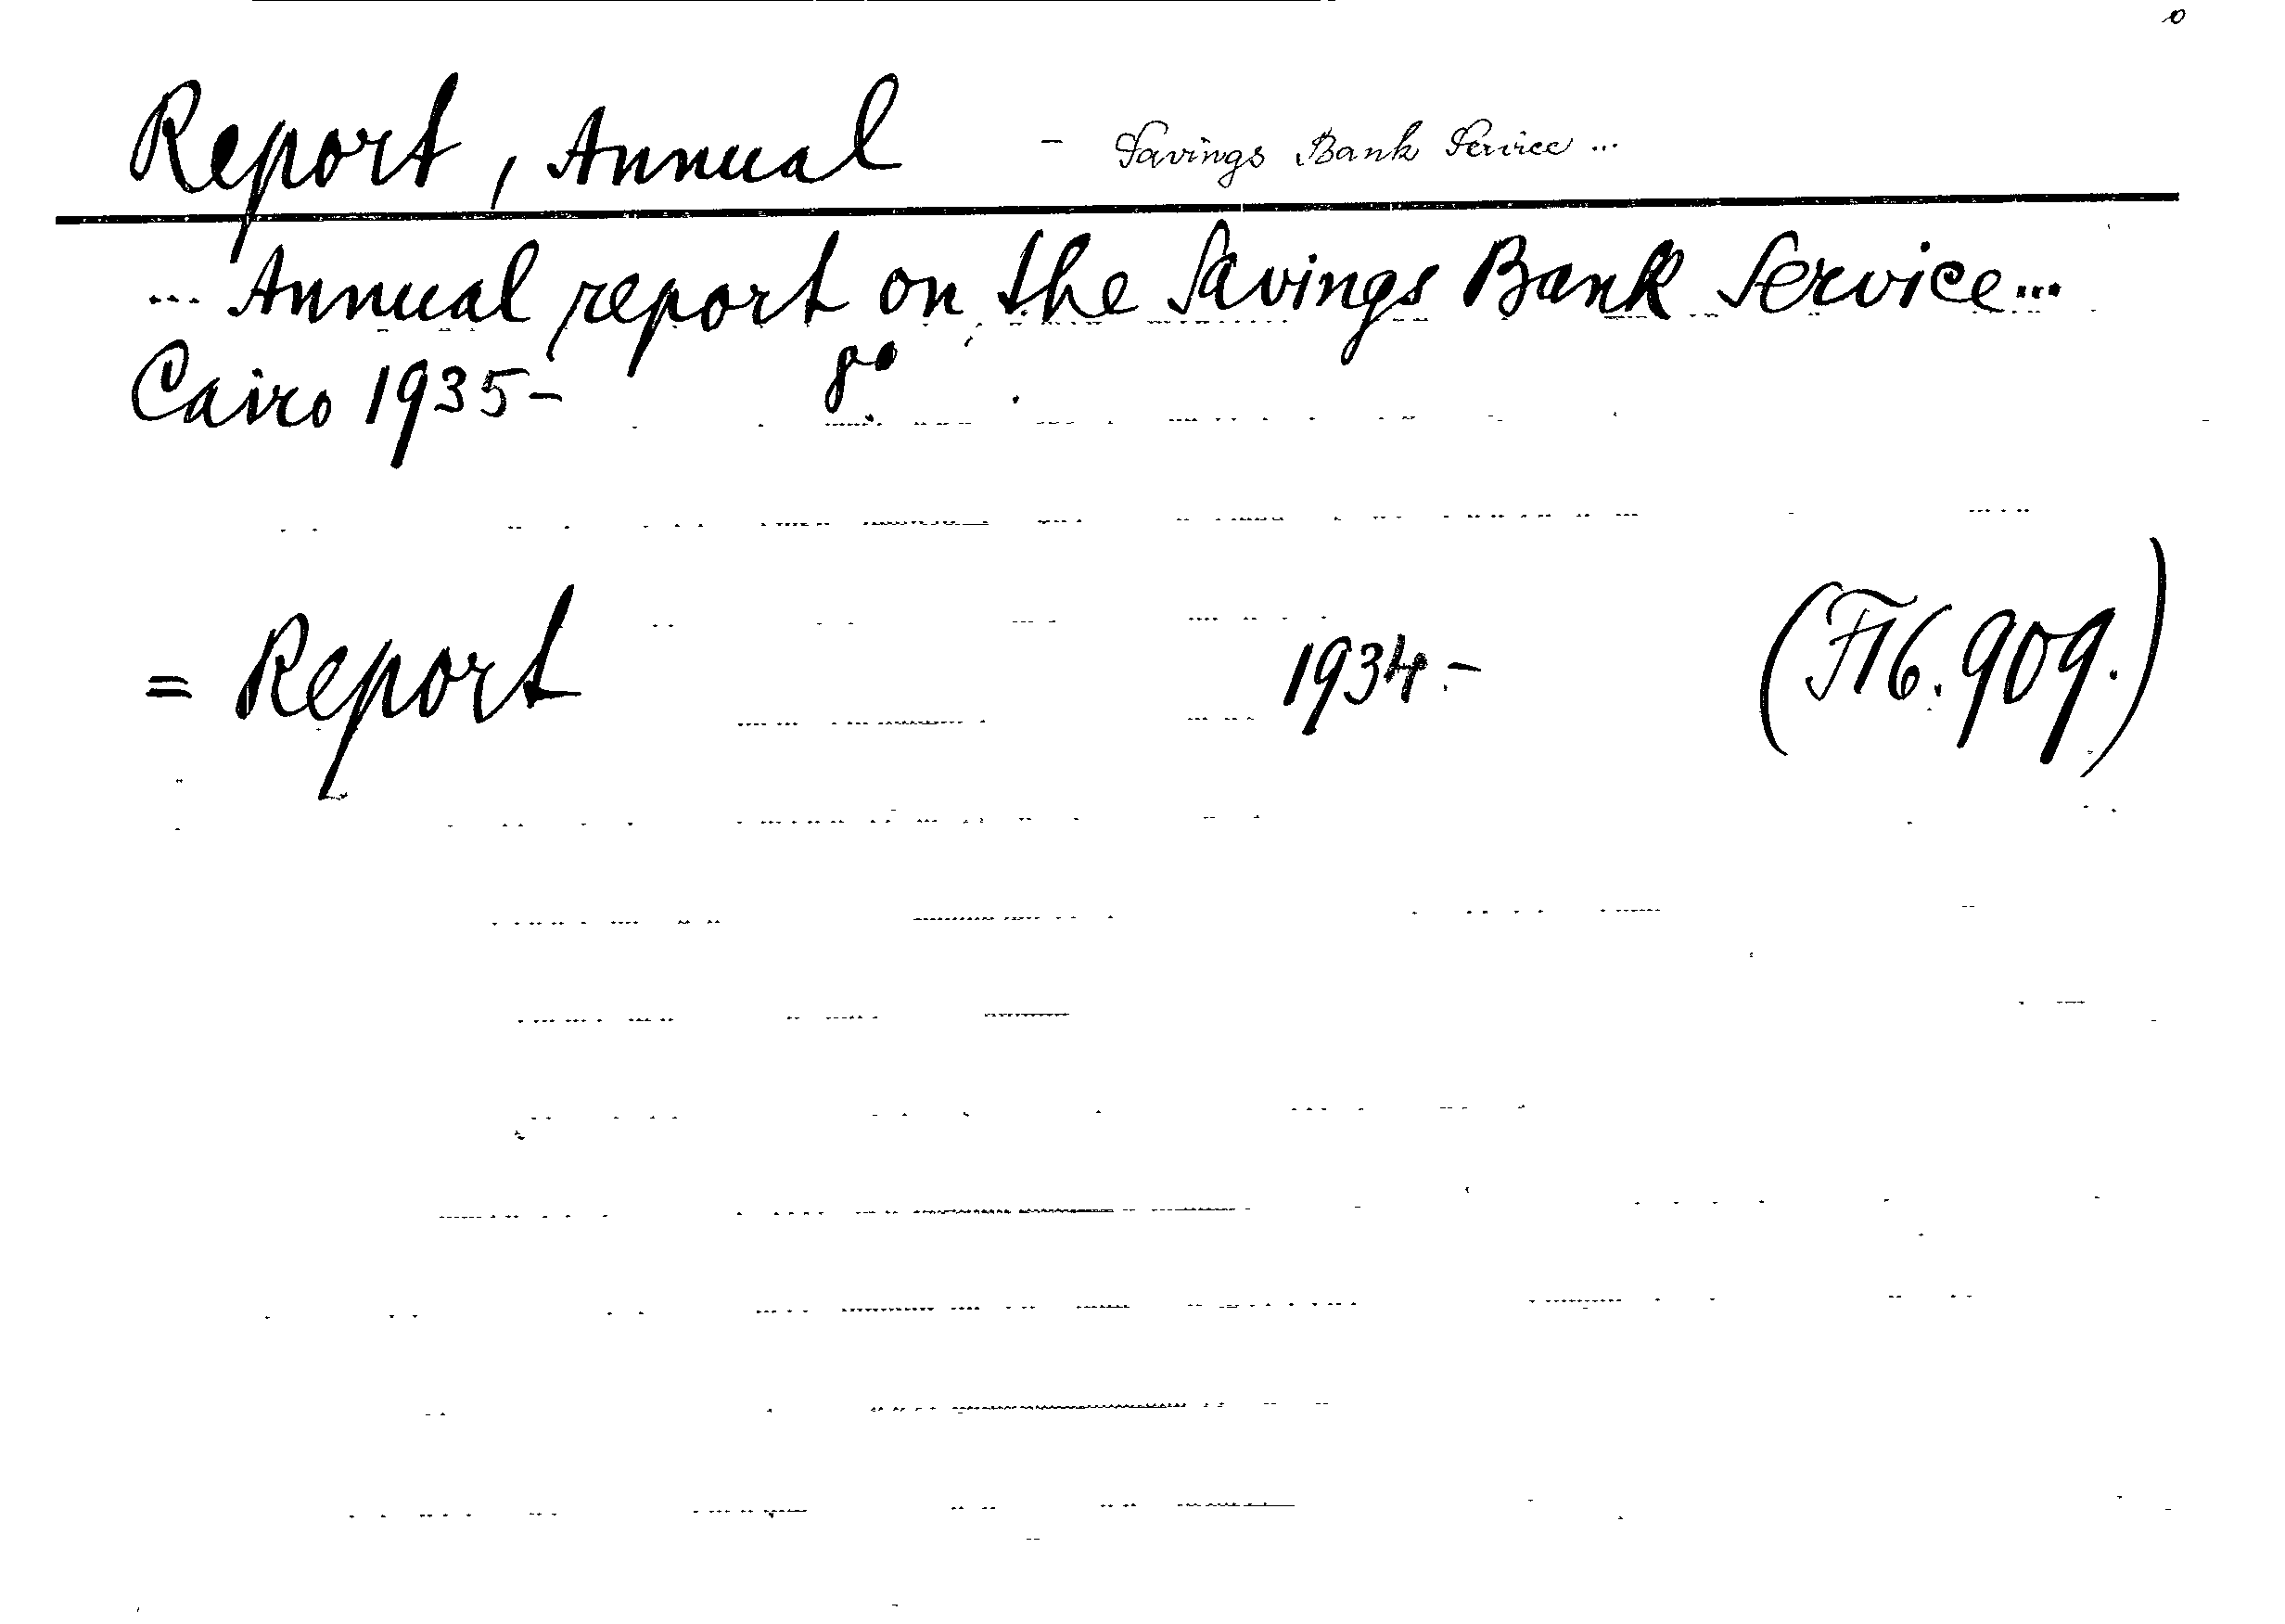 Report, Annual - Savings Bank Service ...
... Annual report on the Savings Bank Service...
Cairo 1935- 8°
= Report 1934.- (F16.909.)